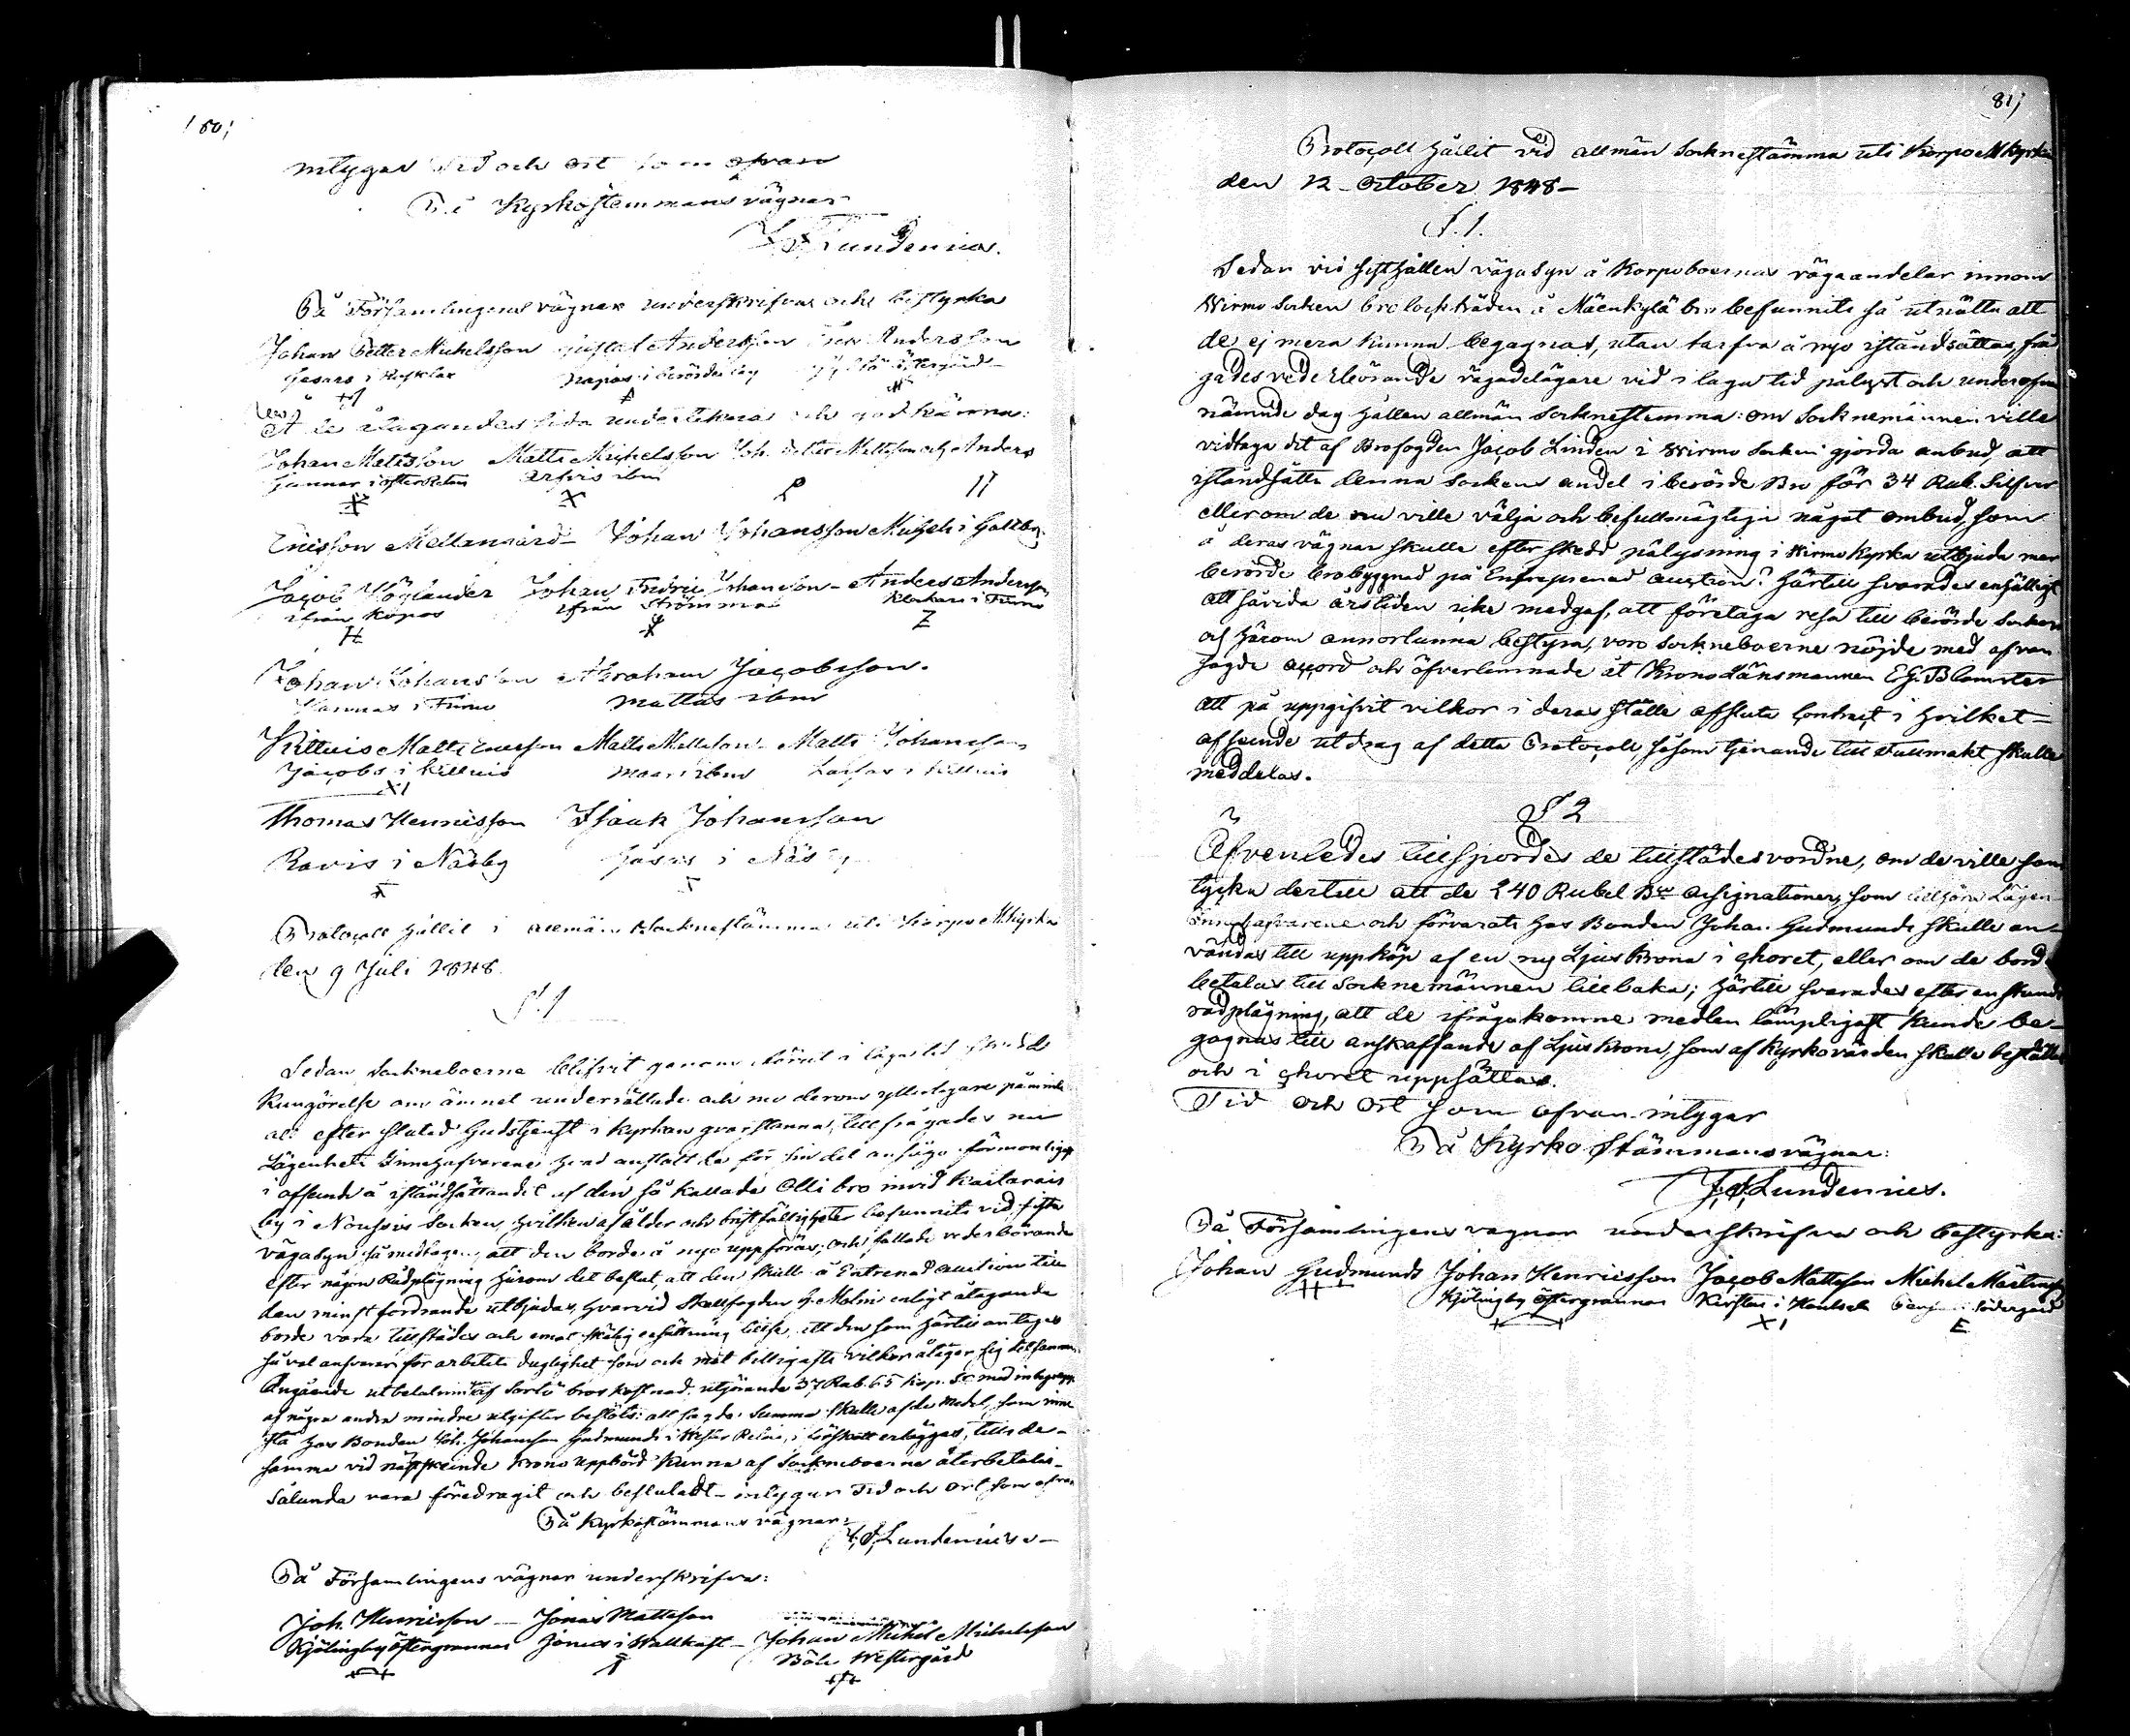 80;
intygas Tid och Ort som ofvan
På Kyrkostemmans vägnar
Lundenius.
På Församlingens vägnar underskrifva och bestyrka
Johan Petter Michelsson Gustaf Andersson Eric Andersson
Gesars i
Åtagandes sida underteckna och godkänna:
Johan Mattsson Matts Michelsson Joh. Petter Mattsson och Anders
Gunnar i Österretais Arfvis ibm
Ericsson Mellangård Johan Johansson Michels i Galtby
Jacob Höglander Johan Fredric Johansson Anders Andersson
ifrån Kopos ifrån Strömma Klockars i Finno
Johan Johansson Abraham Jacobsson.
Hannas i Finno Mattas ibm
Kittuis Matts Ericsson Matts Mattsson Matts Johansson
Jacobs i Kittuis ibm Lassas i Kittuis
Thomas Henricsson Isaak Johansson
Ravis i Näsby i Näsby
Protocoll hållit i allmän Socknestämma uti Korpo M. Kyrka
den 9 Juli 1848.
§. 1
Sedan Sockneboerne blifvit genom i laga tid skedd
Kungörelse om ämnet underrättade och nu derom ytterligare påminte
att efter slutad Gudstjenst i Kyrkan qvarstanna, tillfrågades nu
Lägenhets Innehafvarene hvad anstalt de för sin del ansågo förmonligast
i afseende å iståndsättandet af den så kallade Olli bro invid Kailarais
by i Nousis Socken, hvilken af ålder och bristfälligheter befunnits vid sista
vägasyn så medtagen, att den borde å nyo uppföras; och fattade vederbörande
efter någon Rådplägning härom det beslut, att den skulle å Entrenad auction till
den minst fordrande utbjudas, hvarvid Skallfogden G. Molin enligt åtagande
borde vara tillstädes och emot skälig ersättning tillse, att den som härtill antages
såväl ansvarar för arbetets duglighet som och mot billigaste vilkor åtager sig detsamma.
Angående utbetalning af Sorto bros kostnad, utgörande 37 Rub. 65 Kop. S. med inbegrepp
af några andra mindre utgifter beslöts: att sagda Summa skulle af de medel, som inne
stå hos Bonden Joh. Johansson Gudmunds i Wester Retais, i förskott erläggas, tills de
samma vid nästskeende Krono Uppbörd kunna af Sockneboerne återbetalas.
Sålunda vara föredragit och beslutadt intygar Tid och Ort som ofvan
På Kyrkostämmans vägnar:
F. J. Lundenius
På Församlingens vägnar underskrifva:
Joh. Henricsson Jonas Mattsson
Kjölingby Östergrannas Jonas i Wattkast Johan Michel Michelsson
Böle Westergård
81;
Protocoll hållit vid allmän Socknestämma uti Korpo M Kyrka
den 12 October 1848
§. 1.
Sedan vid sisthållen vägasyn å Korpoboernas vägaandelar innom
Wirmo Socken brolockträden å Mäenkylä bro befunnits så utnötta att
de ej mera kunna begagnas, utan tarfva å nyo iståndsättas, frå
gades vederbörande vägadelägare vid i laga tid pålyst och underofvan
nämnde dag hållen allmän Socknestemma: om Socknemännen ville
vidtaga det af Brofogden Jacob Linden i Wirmo Socken gjorda anbud, att
iståndsätta denna Sockens andel i berörde Bro för 34 Rub. Silfver
eller om de nu ville välja och befullmägtiga något ombud, som
å deras vägnar skulle efter skedd pålysning i Wirmo Kyrka utbjuda mer
berörde brobyggnad på Entreprenad auction? Härtill svarades enhälligt
att såvida årstiden icke medgaf, att företaga resa till berörde Socken
och härom annorlunna bestyra, voro Sockneboerne nöjde med ofvan
sagde accord och öfverlemnade åt Krono Länsmannen E. G. Blomster
att på uppgifvit vilkor i deras ställe afsluta Contract i hvilket
afseende utdrag af detta Protocoll, såsom tjenande till Fullmakt skulle
meddelas.
§ 2
Äfvenledes tillspordes de tillstädesvordne, om de ville sam
tycka dertill att de 240 Rubel Bco Assignationer, som tillhöra Lägen
Innehafvarene och förvarats hos Bonden Johan Gudmunds skulle an
vändas till uppköp af en ny Ljus Krona i choret, eller om de borde
betalas till Socknemännen tillbaka; härtill svarades efter en stunds
rådplägning, att de ifrågakomne medlen lämpligast kunde be
gagnas till anskaffande af Ljus Krona, som af Kyrkovärden skulle beställas
och i choret uppsättas.
Tid och Ort som ofvan intygar
På Kyrko Stämmans vägnar:
F. J. Lundenius.
På Församlingens vägnar underskrifva och bestyrka:
Johan Gudmunds Johan Henricsson Jacob Mattsson Michel Mårtensson
Kjölingby Östergrannas Kirstas i Södergård